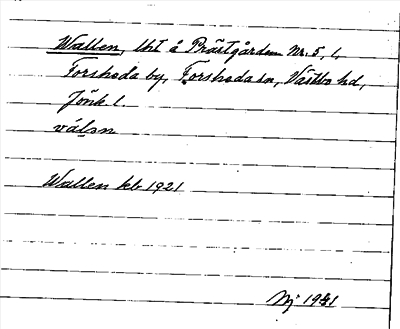 Wallen, lht å Prästgården Nr. 5, i,
Forsheda by, Forsheda sn, Västbo hd,
Jönk l
válan
Wallen kb 1921
Nj 1931